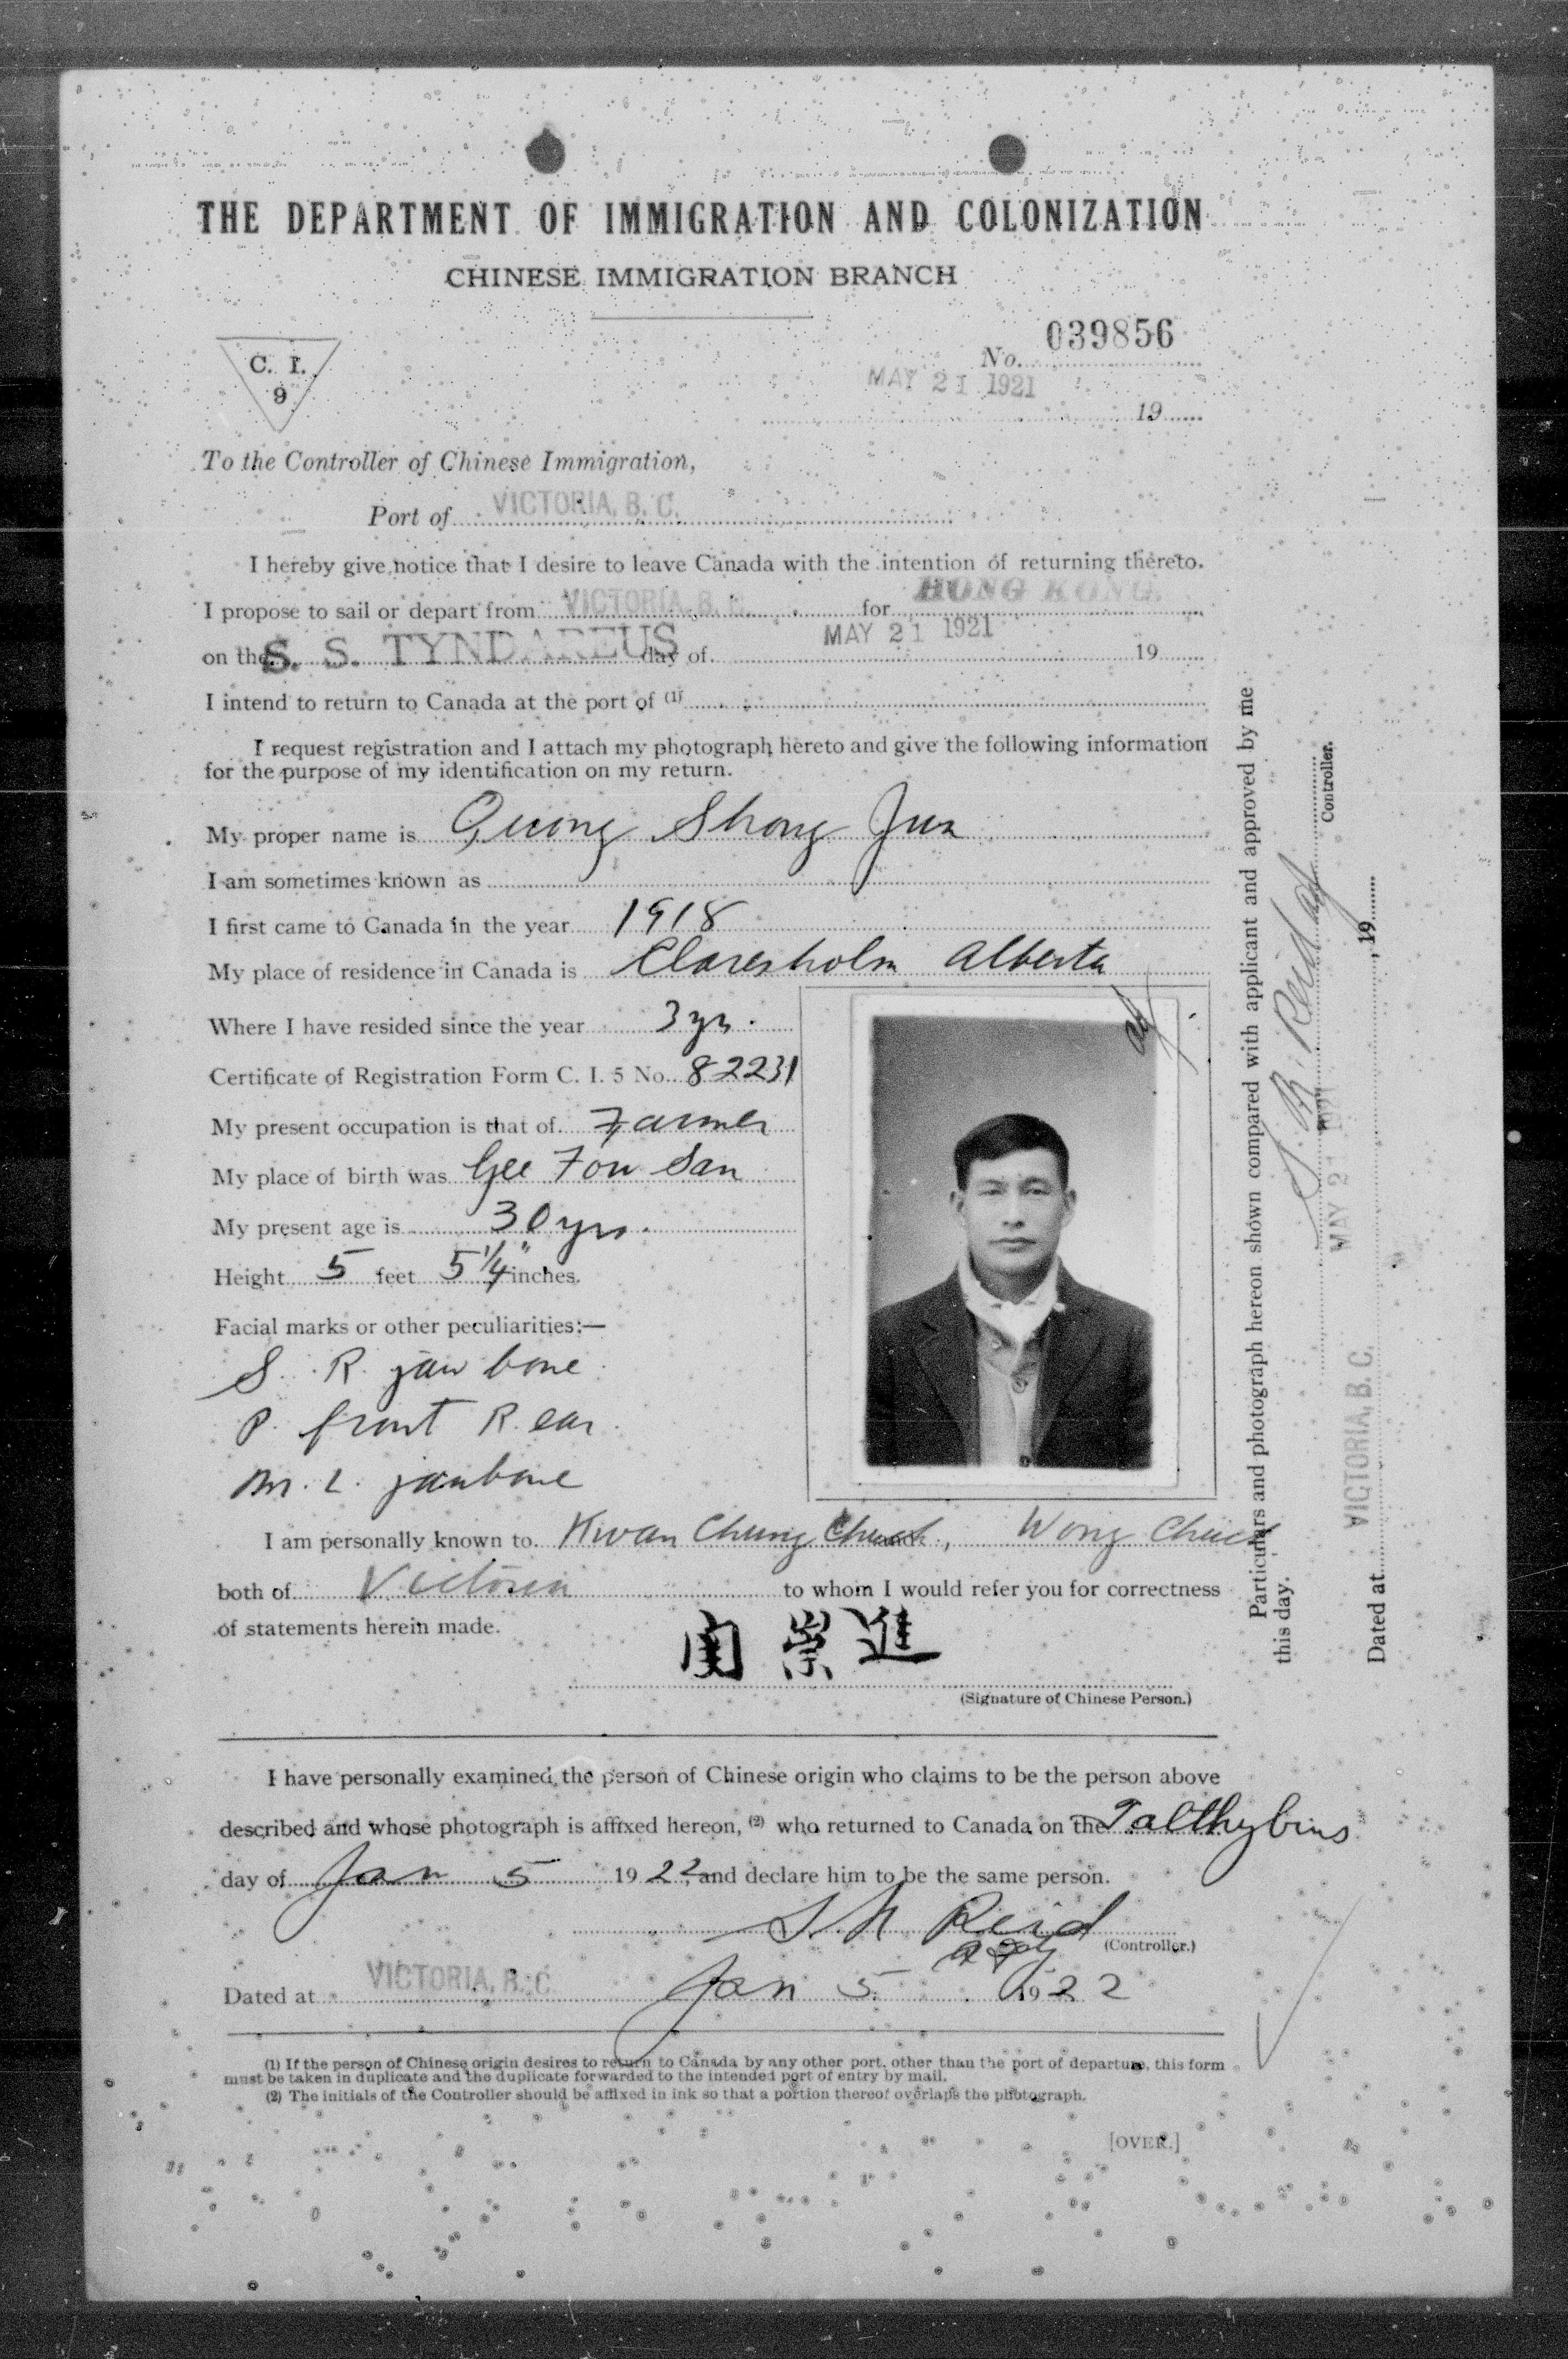 THE DEPARTMENT OF IMMIGRATION AND COLONIZATION
CHINESE IMMIGRATION BRANCH
C. I.
9
No. 039856
MAY 21 1921
19
To the Controller of Chinese Immigration,
Port of VICTORIA, B. C.
I hereby give notice that I desire to leave Canada with the intention of returning thereto.
I propose to sail or depart from VICTORIA, B. C. for HONG KONG.
on the S. S. TYNDAREUS day of MAY 21 1921 19
I intend to return to Canada at the port of (1)
I request registration and I attach my photograph hereto and give the following information
for the purpose of my identification on my return.
My proper name is Quong Shong Jun
I am sometimes known as
I first came to Canada in the year 1918
My place of residence in Canada is Claresholm Alberta
Where I have resided since the year 3 yrs.
Certificate of Registration Form C. I. 5 No. 82231
My present occupation is that of Farmer
My place of birth was Gee Fou San
My present age is 30 yrs.
Height 5 feet 5 1/4" inches.
Facial marks or other peculiarities:—
S. R. jaw bone
P. front R. ear
M. L. jawbone
I am personally known to Kwan Chung and, Wong
both of Victoria to whom I would refer you for correctness
of statements herein made.
関崇進
(Signature of Chinese Person.)
I have personally examined the person of Chinese origin who claims to be the person above
described and whose photograph is affixed hereon, (2) who returned to Canada on the Talthybius
day of Jan 5 1922, and declare him to be the same person.
S. N. Reid
(Controller.)
Dated at VICTORIA, B. C. Jan 5 1922
(1) If the person of Chinese origin desires to return to Canada by any other port, other than the port of departure, this form
must be taken in duplicate and the duplicate forwarded to the intended port of entry by mail.
(2) The initials of the Controller should be affixed in ink so that a portion thereof overlaps the photograph.
[OVER.]
Particulars and photograph hereon shown compared with applicant and approved by me
this day.
S. N. Reid
Controller.
MAY 21 1921
Dated at VICTORIA, B. C. , 19